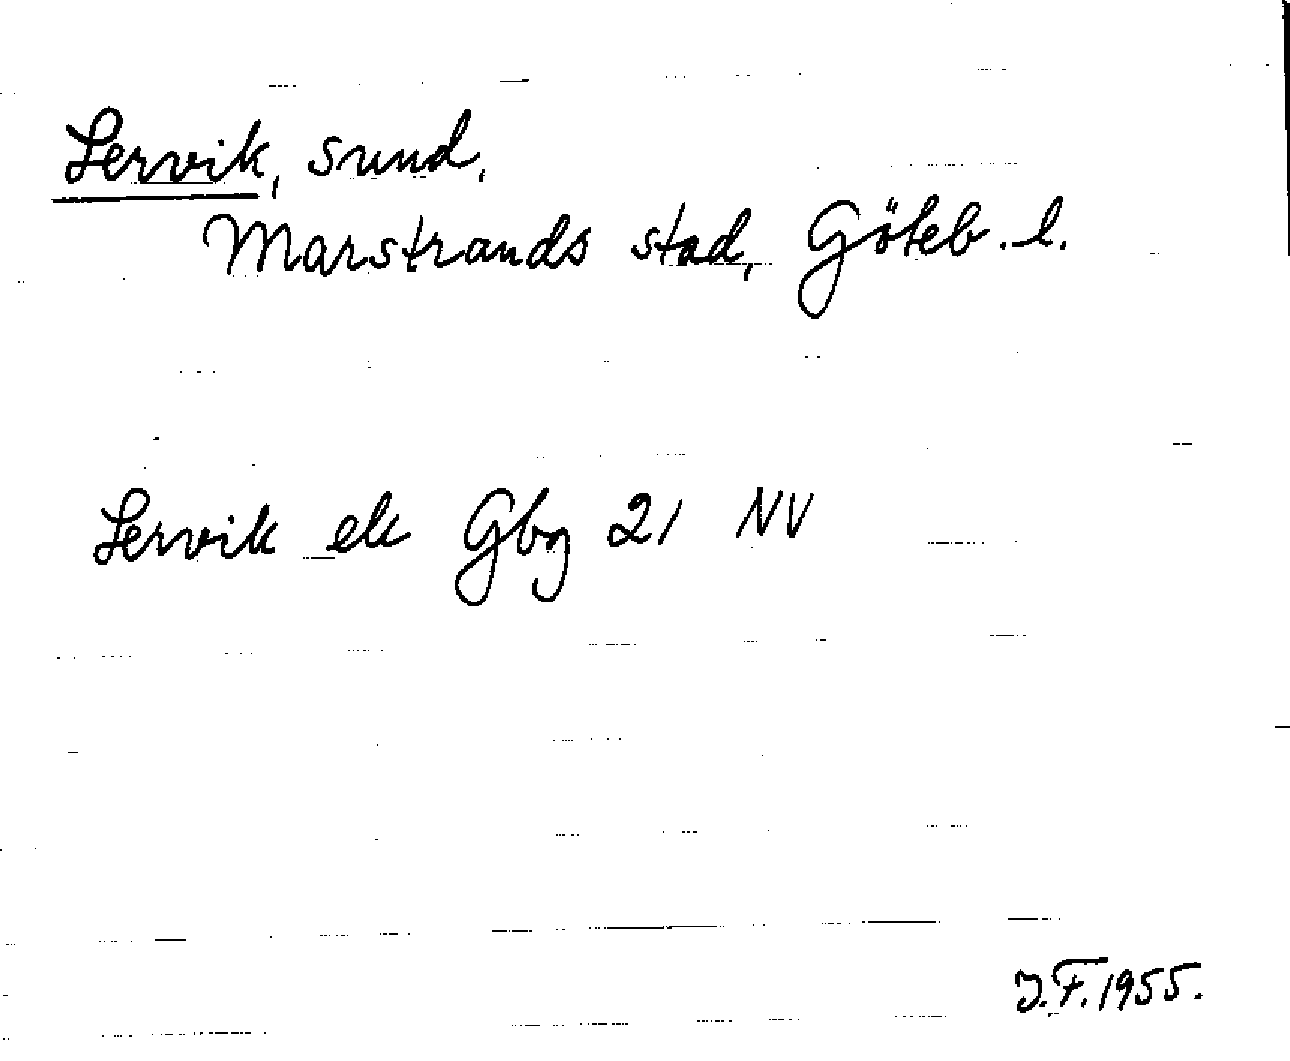 Lervik, sund,
Marstrands stad, Göteb. l.
Lervik ek Gbg 21 NV
J.F. 1955.